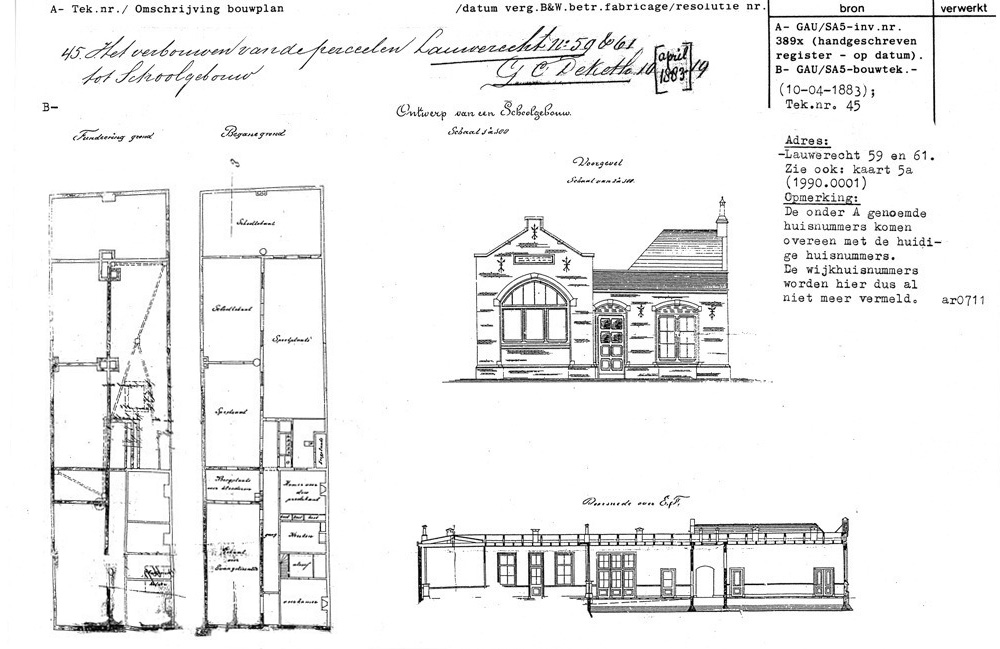 A- Tek.nr./ Omschrijving bouwplan
/datum verg.B&W.betr.fabricage/resolutie nr.
bron
verwerkt
45. Het verbouwen van de perceelen Lauwerecht No 59 & 61
tot Schoolgebouw
10 [april 1883] 19
A- GAU/SA5-inv.nr.
389x (handgeschreven
register - op datum).
B- GAU/SA5-bouwtek.-
(10-04-1883);
Tek.nr. 45
B-
Ontwerp van een Schoolgebouw.
Schaal 1 à 100
Fundeering grond
Beganegrond
Adres:
-Lauwerecht 59 en 61.
Zie ook: kaart 5a
(1990.0001)
Opmerking:
De onder A genoemde
huisnummers komen
overeen met de huidi-
ge huisnummers.
De wijkhuisnummers
worden hier dus al
niet meer vermeld.
ar0711
Voorgevel
Schaal van 1 à 100.
Schoollokaal
Schoollokaal
Speelplaats
Speellokaal
gang
Keuken
Doorsnede over E.F.